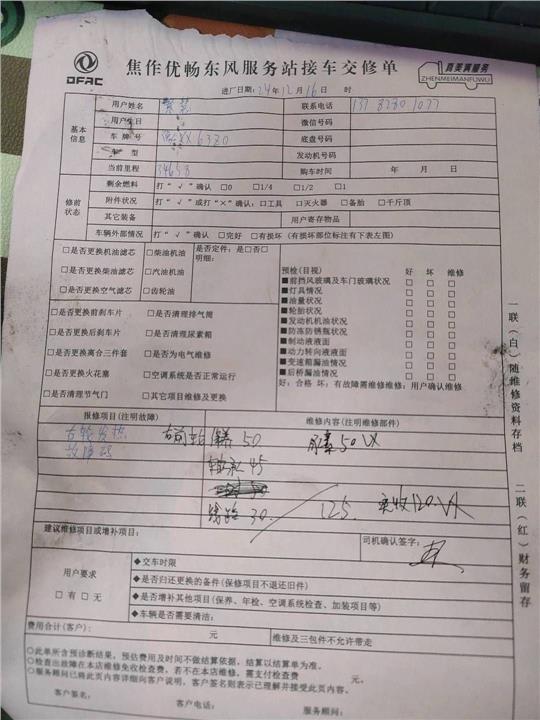 DFAC
焦作优畅东风服务站接车交修单
真美满服务
ZHENMEIMANFUWU
进厂日期: 24年12月16日 时
基本信息
用户姓名
联系电话
用户生日
微信号码
车牌号 6380
底盘号码
车 型
发动机号码
当前里程 34658
购车时间 年 月 日
修前状态
剩余燃料 打“√”确认 □0 □1/4 □1/2 □1
附件状况 打“√”或打“×”确认：□工具 □灭火器 □备胎 □千斤顶
其它装备
用户寄存物品
车辆外部情况 打“√”确认 □完好 □有损坏 (有损坏部位标注有下表左图)
□是否更换机油滤芯 □柴油机油
□是否更换柴油滤芯 □汽油机油
□是否更换空气滤芯 □齿轮油
是否定件: 是□否□
明细:
□是否更换前刹车片 □是否清理排气筒
□是否更换后刹车片 □是否清理尿素箱
□是否更换离合三件套 □是否为电气维修
□是否更换火花塞 □空调系统是否正常运行
□是否清理节气门 □其它项目维修及更换
预检(目视) 好 坏 维修
■前挡风玻璃及车门玻璃状况 □ □ □
■灯具情况 □ □ □
■油量状况 □ □ □
■轮胎状况 □ □ □
■发动机机油状况 □ □ □
■防冻防锈瓶状况 □ □ □
■制动液液面 □ □ □
■动力转向液液面 □ □ □
■变速箱漏油情况 □ □ □
■后桥漏油情况 □ □ □
好：合格 坏：有故障需维修维修：用户确认维修
报修项目(注明故障)
维修内容(注明维修部件)
右轮发热
50
尿素50
故障码
轴承45
30
125
实收120
建议维修项目或增补项目:
司机确认签字:
用户要求
□有 □无
◆交车时限
◆是否归还更换的备件(保修项目不退还旧件)
◆是否增补其他项目(保养、年检、空调系统检查、加装项目等)
◆车辆是否需要清洁:
费用合计(客户): 元
维修及三包件不允许带走
○此单所含预诊断结果，预估费用及时间不做结算依据，结算以结算单为准。
○检查出故障在本店维修免收检查费，若不在本店维修，需支付检查费 元。
○服务顾问已将此页内容详细向客户说明，客户签名则表示已理解并接受此页内容。
客户签名:
客户电话:
服务顾问:
一联(白)随维修资料存档
二联(红)财务留存